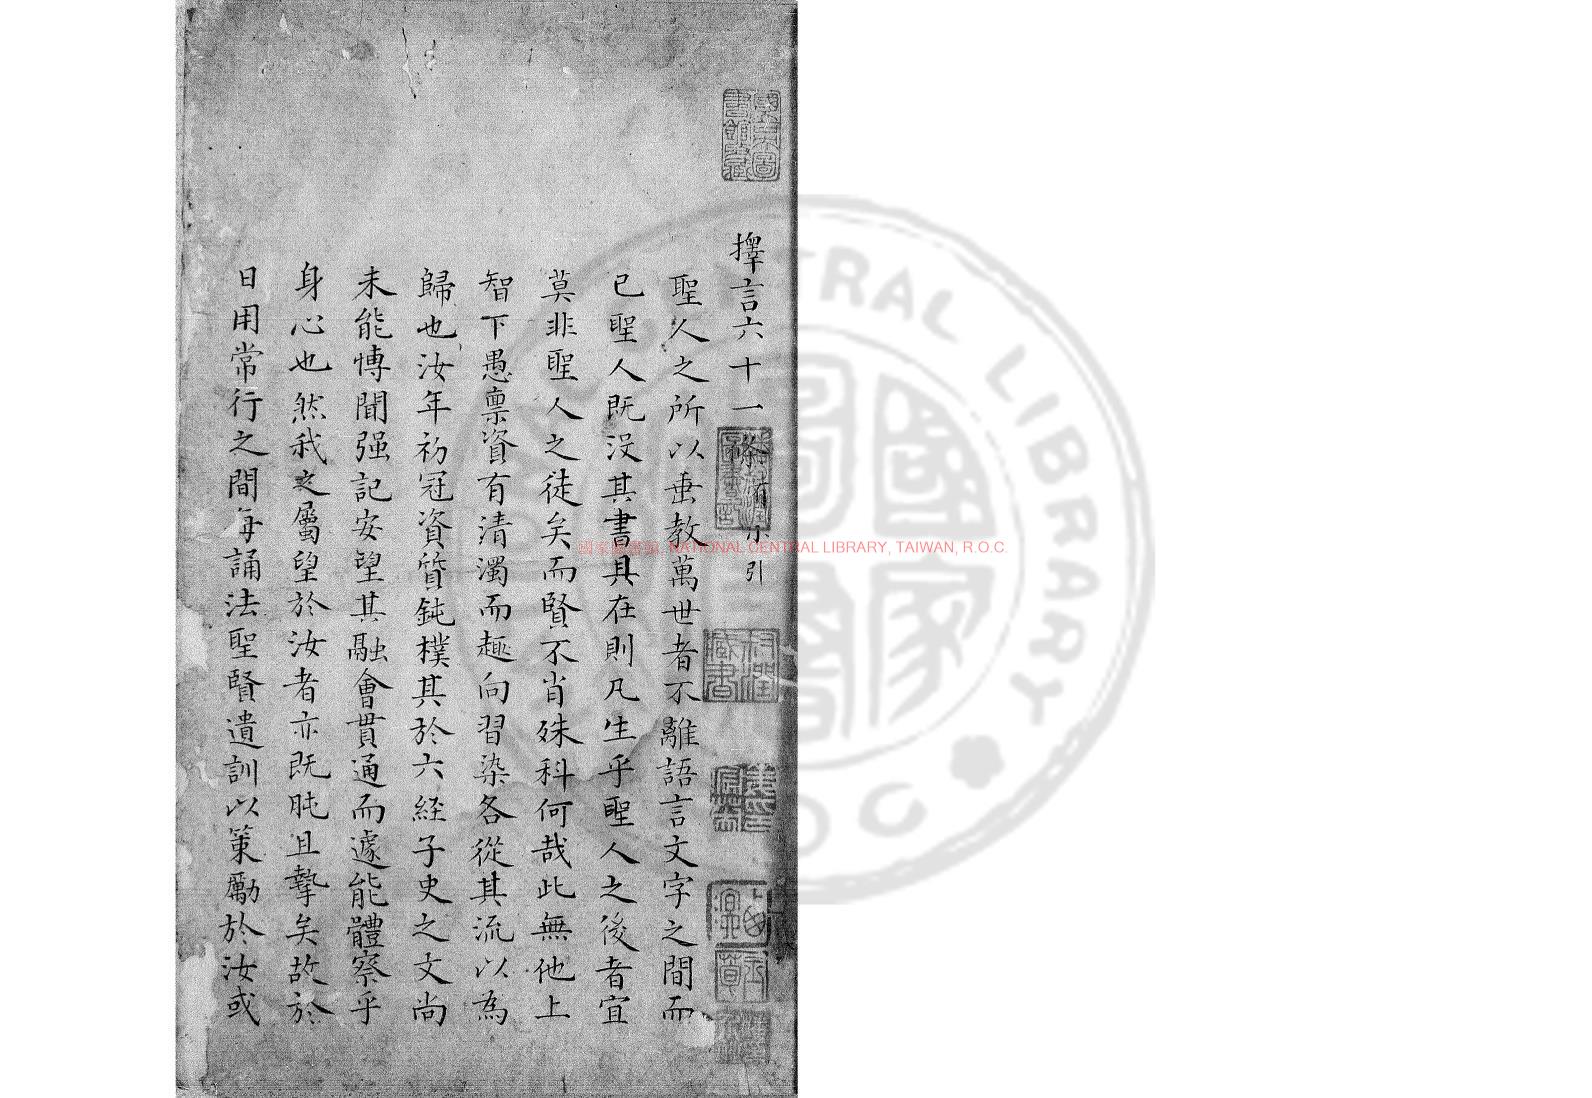 擇言六十一條 小引
聖人之所以垂教萬世者不離語言文字之間而
已聖人既没其書具在則凡生乎聖人之後者宜
莫非聖人之徒矣而賢不肖殊科何哉此無他上
智下愚禀資有清濁而趣向習染各從其流以為
歸也汝年初冠資質鈍樸其於六経子史之文尚
未能博聞强記安望其融會貫通而遽能體察乎
身心也然我之屬望於汝者亦既肫且摯矣故於
日用常行之間每誦法聖賢遺訓以策勵於汝或
國家圖書館, NATIONAL CENTRAL LIBRARY, TAIWAN, R.O.C.